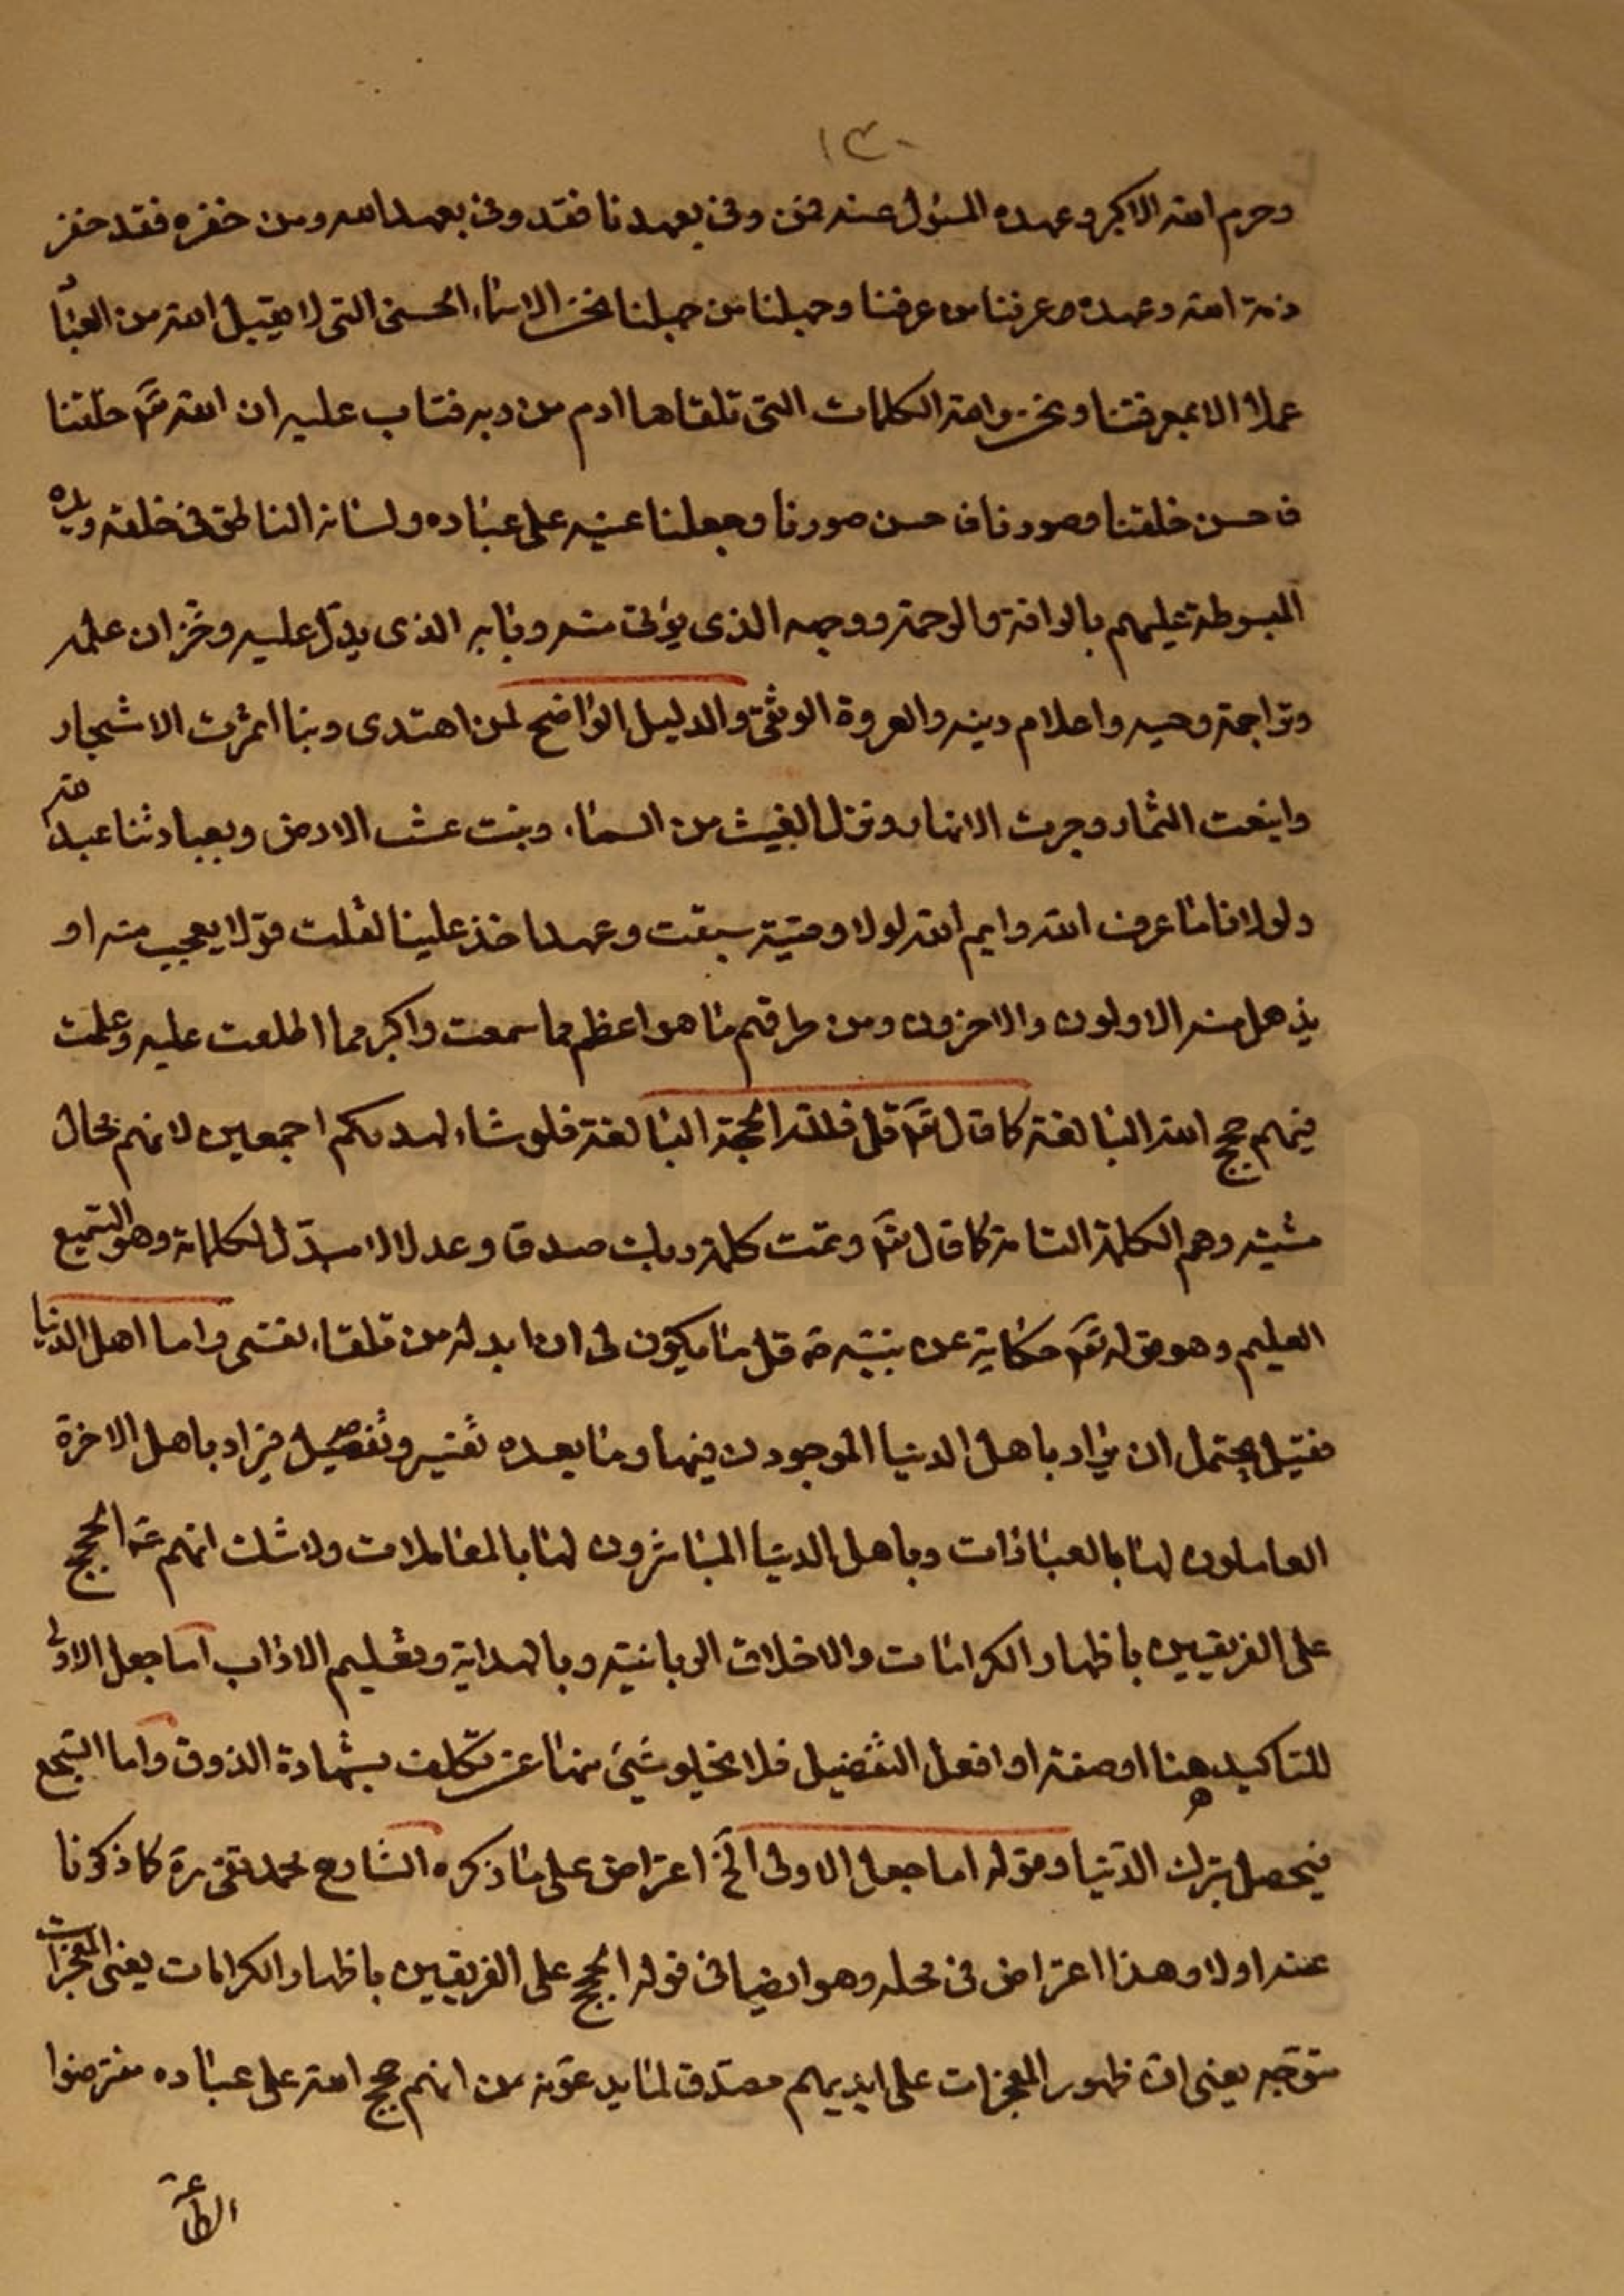 ١٣٠
وحرم الله الاكبر وعهده المسؤل عنه فمن وفى بعهدنا فقد وفى بعهد الله ومن خفره فقد خفر
ذمة الله وعهده عرفنا من عرفنا وجهلنا من جهلنا نحن الاسماء الحسنى التى لا يقبل الله من العباد
عملا الا بمعرفتنا ونحن والله الكلمات التى تلقاها ادم من ربه فتاب عليه ان الله تع خلقنا
فاحسن خلقنا وصورنا فاحسن صورنا وجعلنا عينه على عباده ولسانه الناطق فى خلقه ويده
المبسوطة عليهم بالرافة والرحمة ووجهه الذى يؤتى منه وبابه الذى يدل عليه وخزان علمه
وتراجمة وحيه واعلام دينه والعروة الوثقى والدليل الواضح لمن اهتدى وبنا اثمرت الاشجار
واينعت الثمار وجرت الانهار ونزل الغيث من السماء ونبت عشب الارض وبعبادتنا عبد الله
ولولانا ما عرف الله وايم الله لولا وصية سبقت وعهد اخذ علينا لقلت قولا يعجب منه او
يذهل منه الاولون والاخرون ومن طرقهم ما هو اعظم مما سمعت واكبر مما اطلعت عليه وعلمت
فهم حجج الله البالغة كما قال تع قل فلله الحجة البالغة فلو شاء لهديكم اجمعين لانهم محال
مشيته وهم الكلمة التامة كما قال تع وتمت كلمة ربك صدقا وعدلا لا مبدل لكلماته وهو السميع
العليم وهو قوله تع حكاية عن نبيه ص قل ما يكون لى ان ابدله من تلقاء نفسى واما اهل الدنيا
فقيل يحتمل ان يراد باهل الدنيا الموجودون فيها وما بعده تفسير وتفصيل فيراد باهل الاخرة
العاملون لها بالعبادات وباهل الدنيا المباشرون لها بالمعاملات ولا شك انهم ع الحجج
على الفريقين باظهار الكرامات والاخلاق الربانية وبالهداية وتعليم الاداب اما جعل الاولى
للتاكيد هنا او صفة او افعل التفضيل فلا يخلو شئ منها عن تكلف بشهادة الذوق واما السجع
فيحصل بترك الدنيا وقوله اما جعل الاولى الخ اعتراض على ما ذكره الشارح محمد تقى ره كما ذكرنا
عنه اولا وهذا اعتراض فى محله وهو ايضا فى قوله الحجج على الفريقين باظهار الكرامات يعنى المعجزات
متوجه يعنى ان ظهور المعجزات على ايديهم مصدق لما يدعونه من انهم حجج الله على عباده مفترضوا
الطاعة